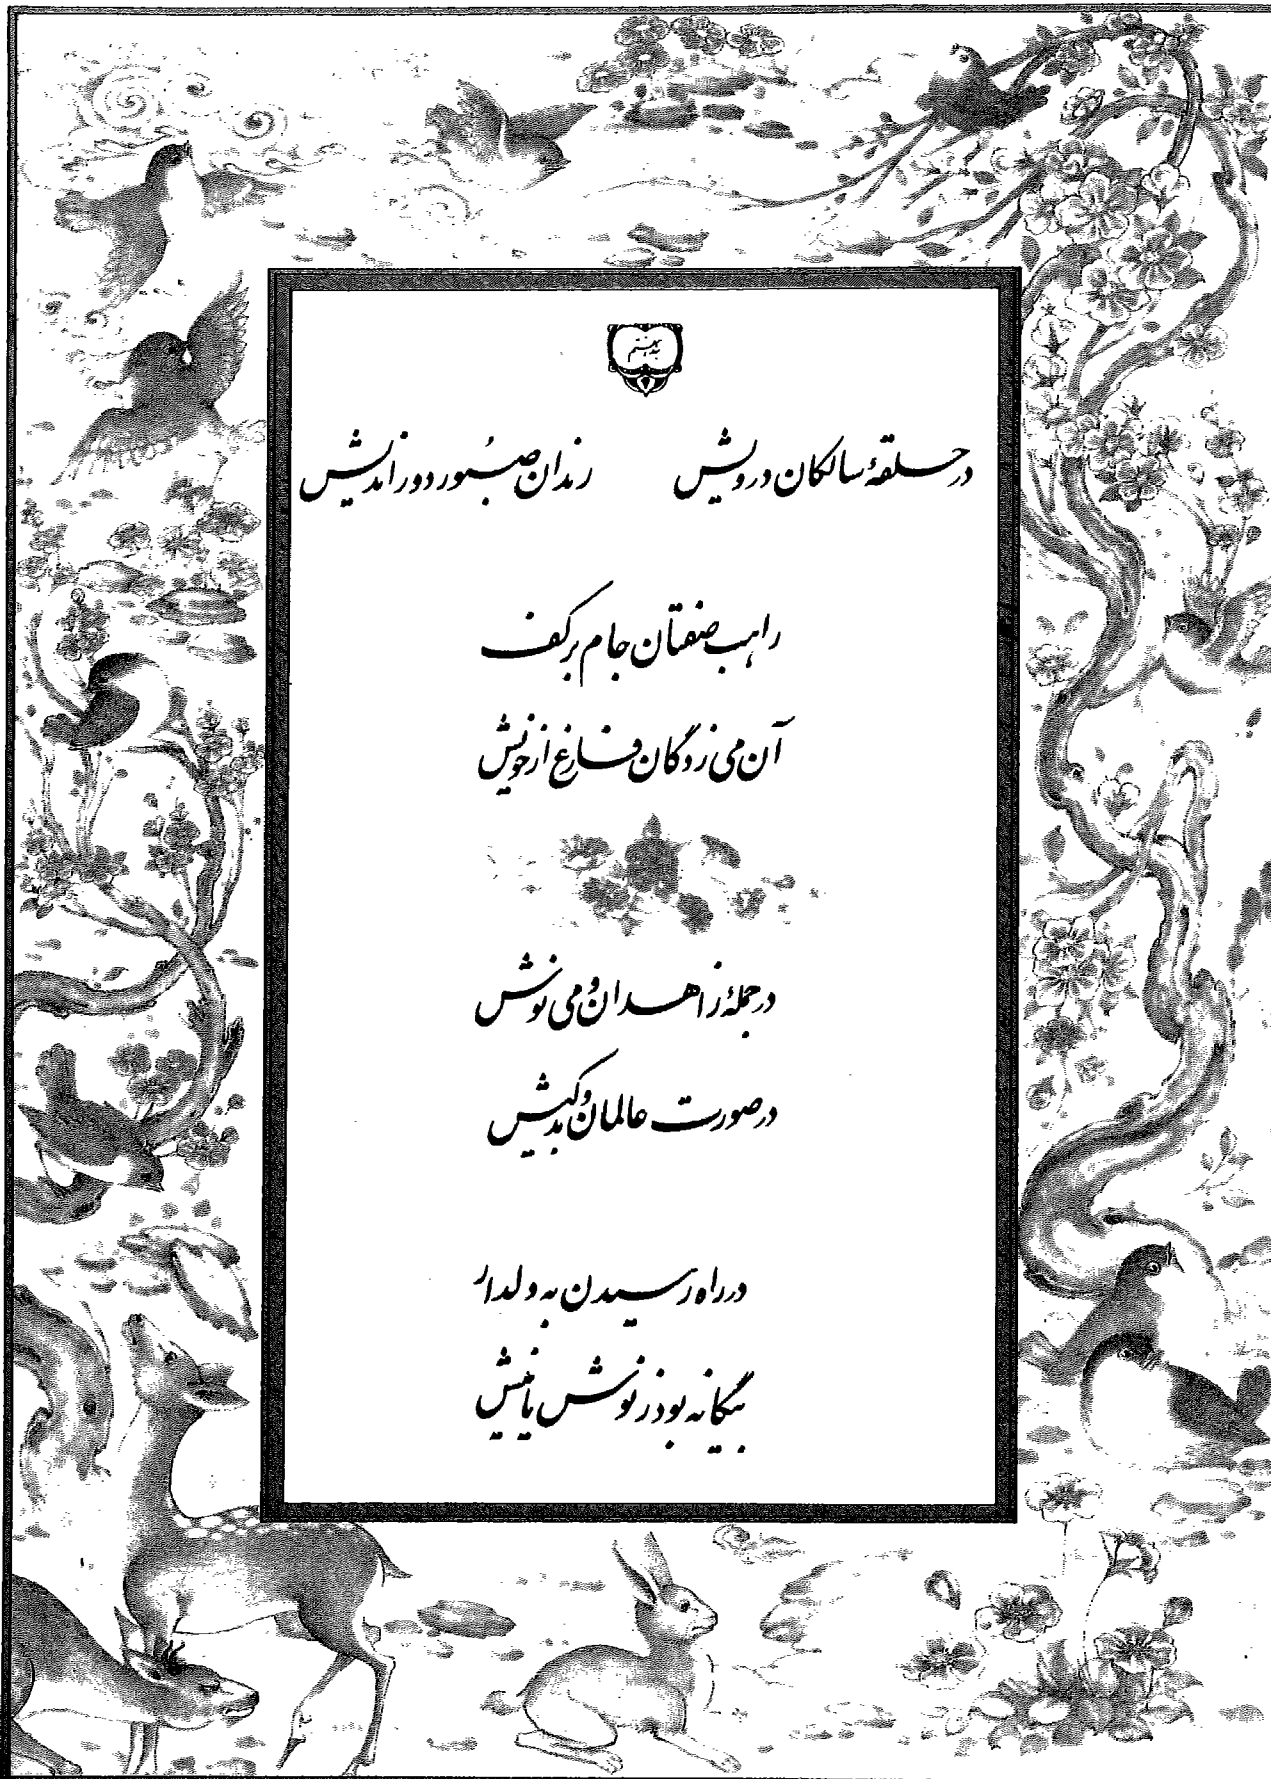 بند هشتم
در حلقهٔ سالکان درویش رندان صبُور دوراندیش
راهب صفتان جام بر کف
آن می زدگان فارغ از خویش
در جملهٔ زاهدان و می نوش
در صورت عالمان و بدکیش
در راه رسیدن به دلدار
بیگانه بود ز نوش یا نیش